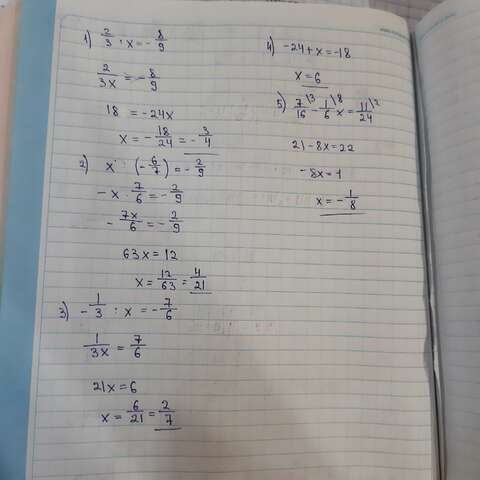 1) 2/3 : x = - 8/9
2/3x = - 8/9
18 = -24x
x = - 18/24 = - 3/4
2) x : (- 6/7) = - 2/9
-x · 7/6 = - 2/9
- 7x/6 = - 2/9
63x = 12
x = 12/63 = 4/21
3) - 1/3 : x = - 7/6
1/3x = 7/6
21x = 6
x = 6/21 = 2/7
4) -24 + x = -18
x = 6
5) 7/16 \3 - 1/6 \8 x = 11/24 \2
21 - 8x = 22
-8x = 1
x = - 1/8